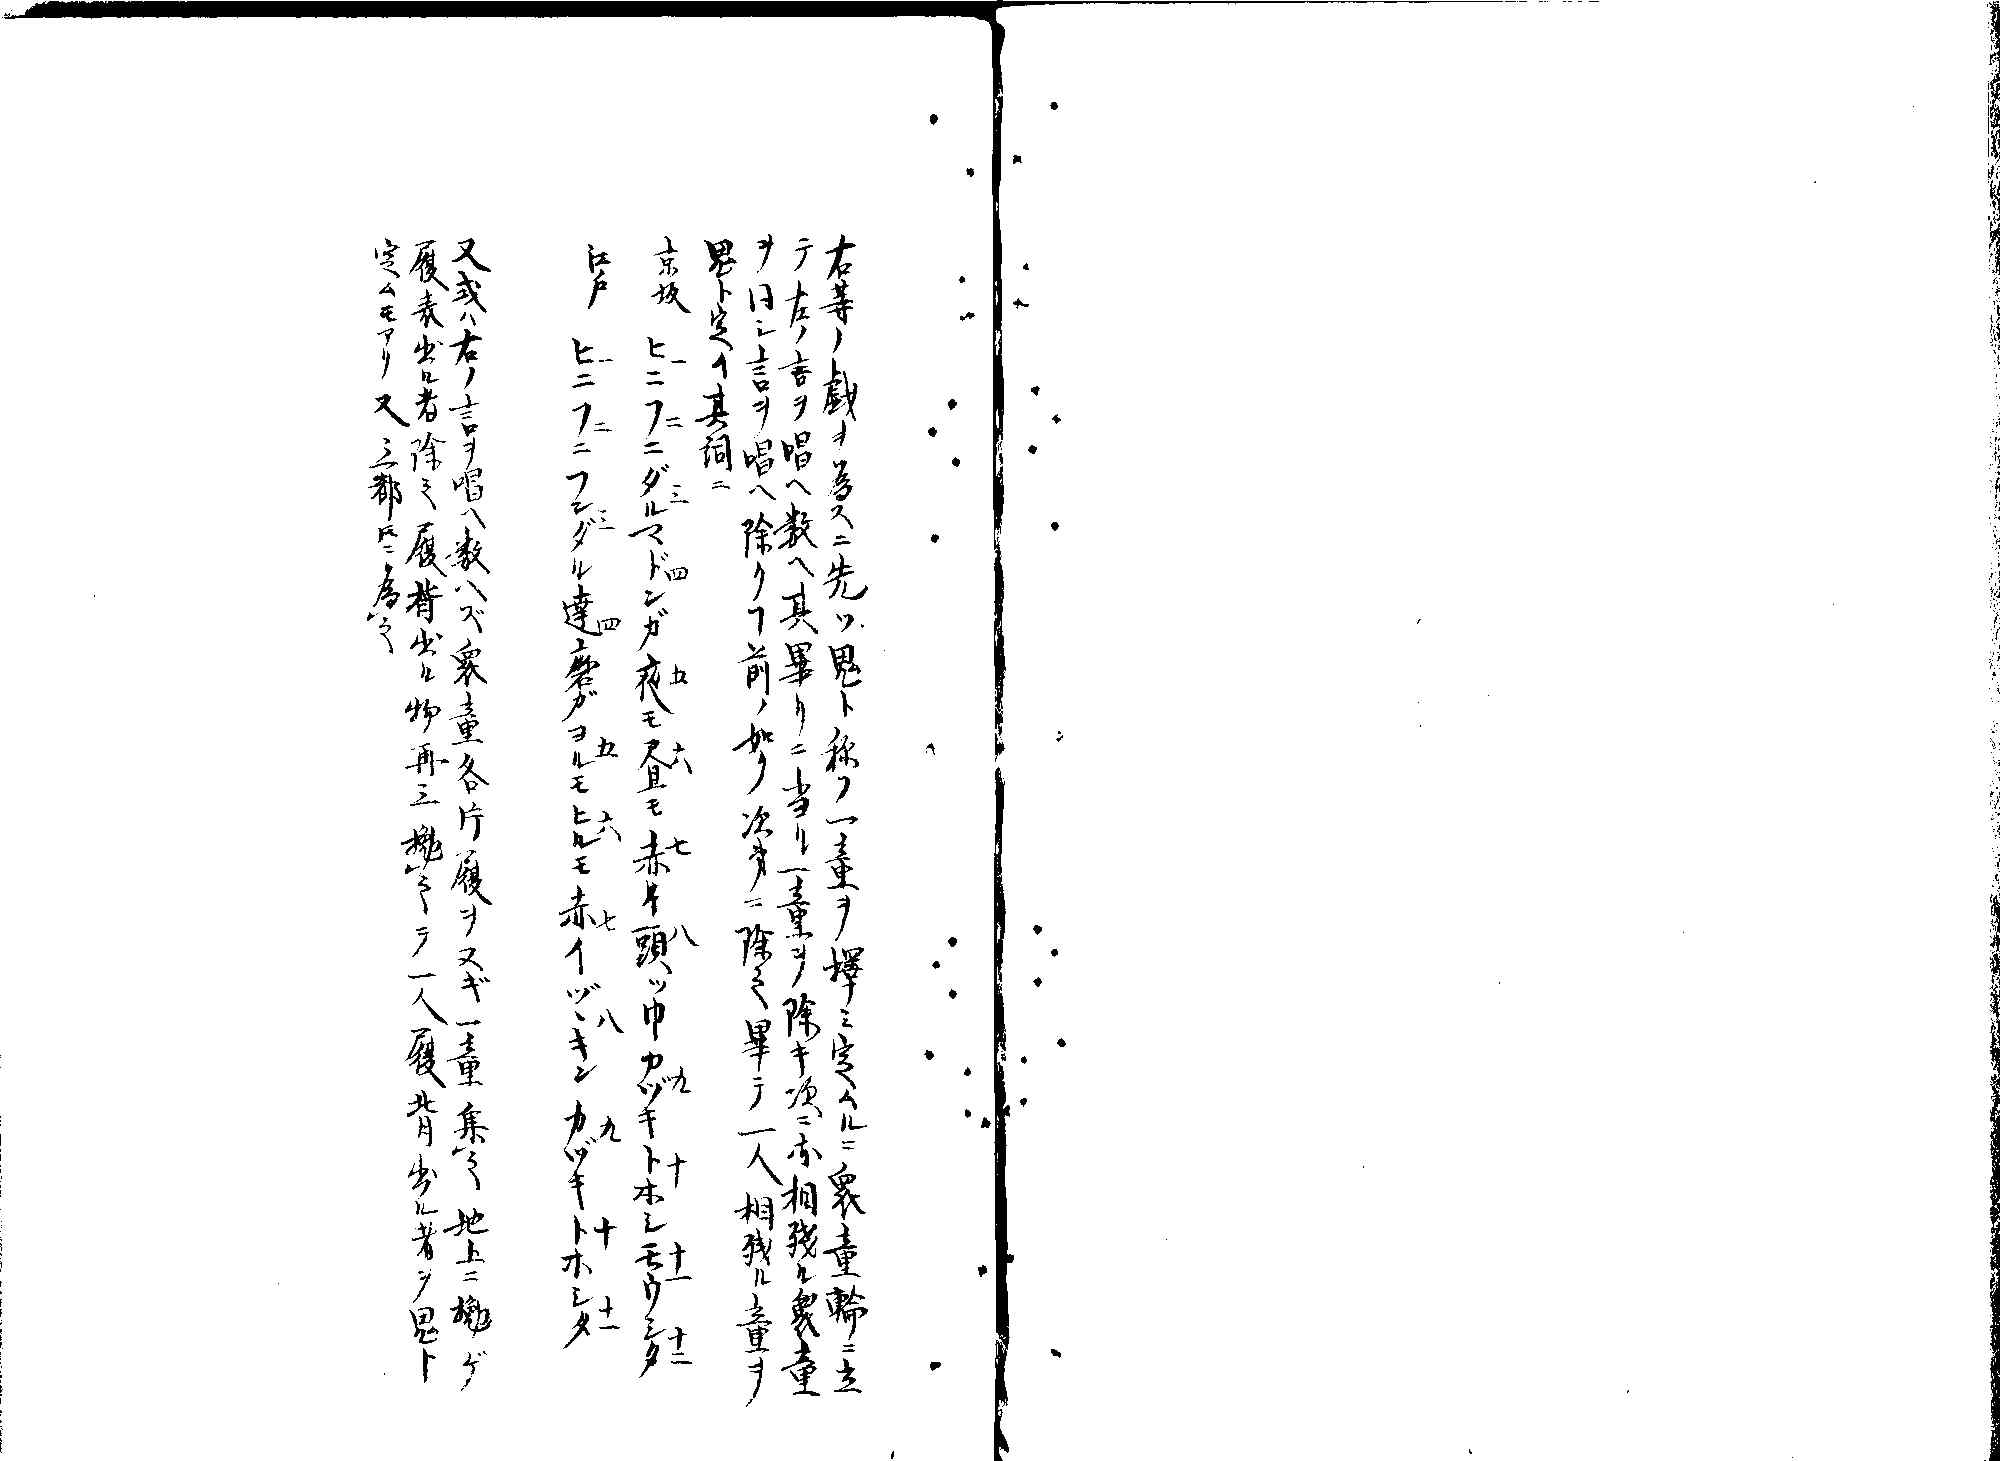 右等ノ戯ヲ為スニ先ツ鬼ト称フ一童ヲ擇ミ定ムルニ衆童輪ニ立
テ左ノ言ヲ唱ヘ数ヘ其畢リニ当ル一童ヲ除キ次ニ亦相残ル衆童
ヲ同シ言ヲ唱ヘ除クヿ前ノ如ク次第ニ除之畢テ一人相残ル童ヲ
鬼ト定ム其詞ニ
京坂 ヒニフニダルマドンガ夜モ昼モ赤キ頭ヅ巾カヅキトホシモウシタ
一 二 三 四 五 六 七 八 九 十 十一 十二
江戸 ヒニフニフンダル達磨ガヨルモヒルモ赤イヅヽキンカヅキトホシタ
一 二 三 四 五 六 七 八 九 十 十一
又或ハ右ノ言ヲ唱ヘ数ヘズ衆童各片履ヲヌギ一童集之地上ニ擲ゲ
履表出ル者除之履背出ル物再三擲之テ一人履背出ル者ヲ鬼ト
定ムモアリ又三都トモニ為之